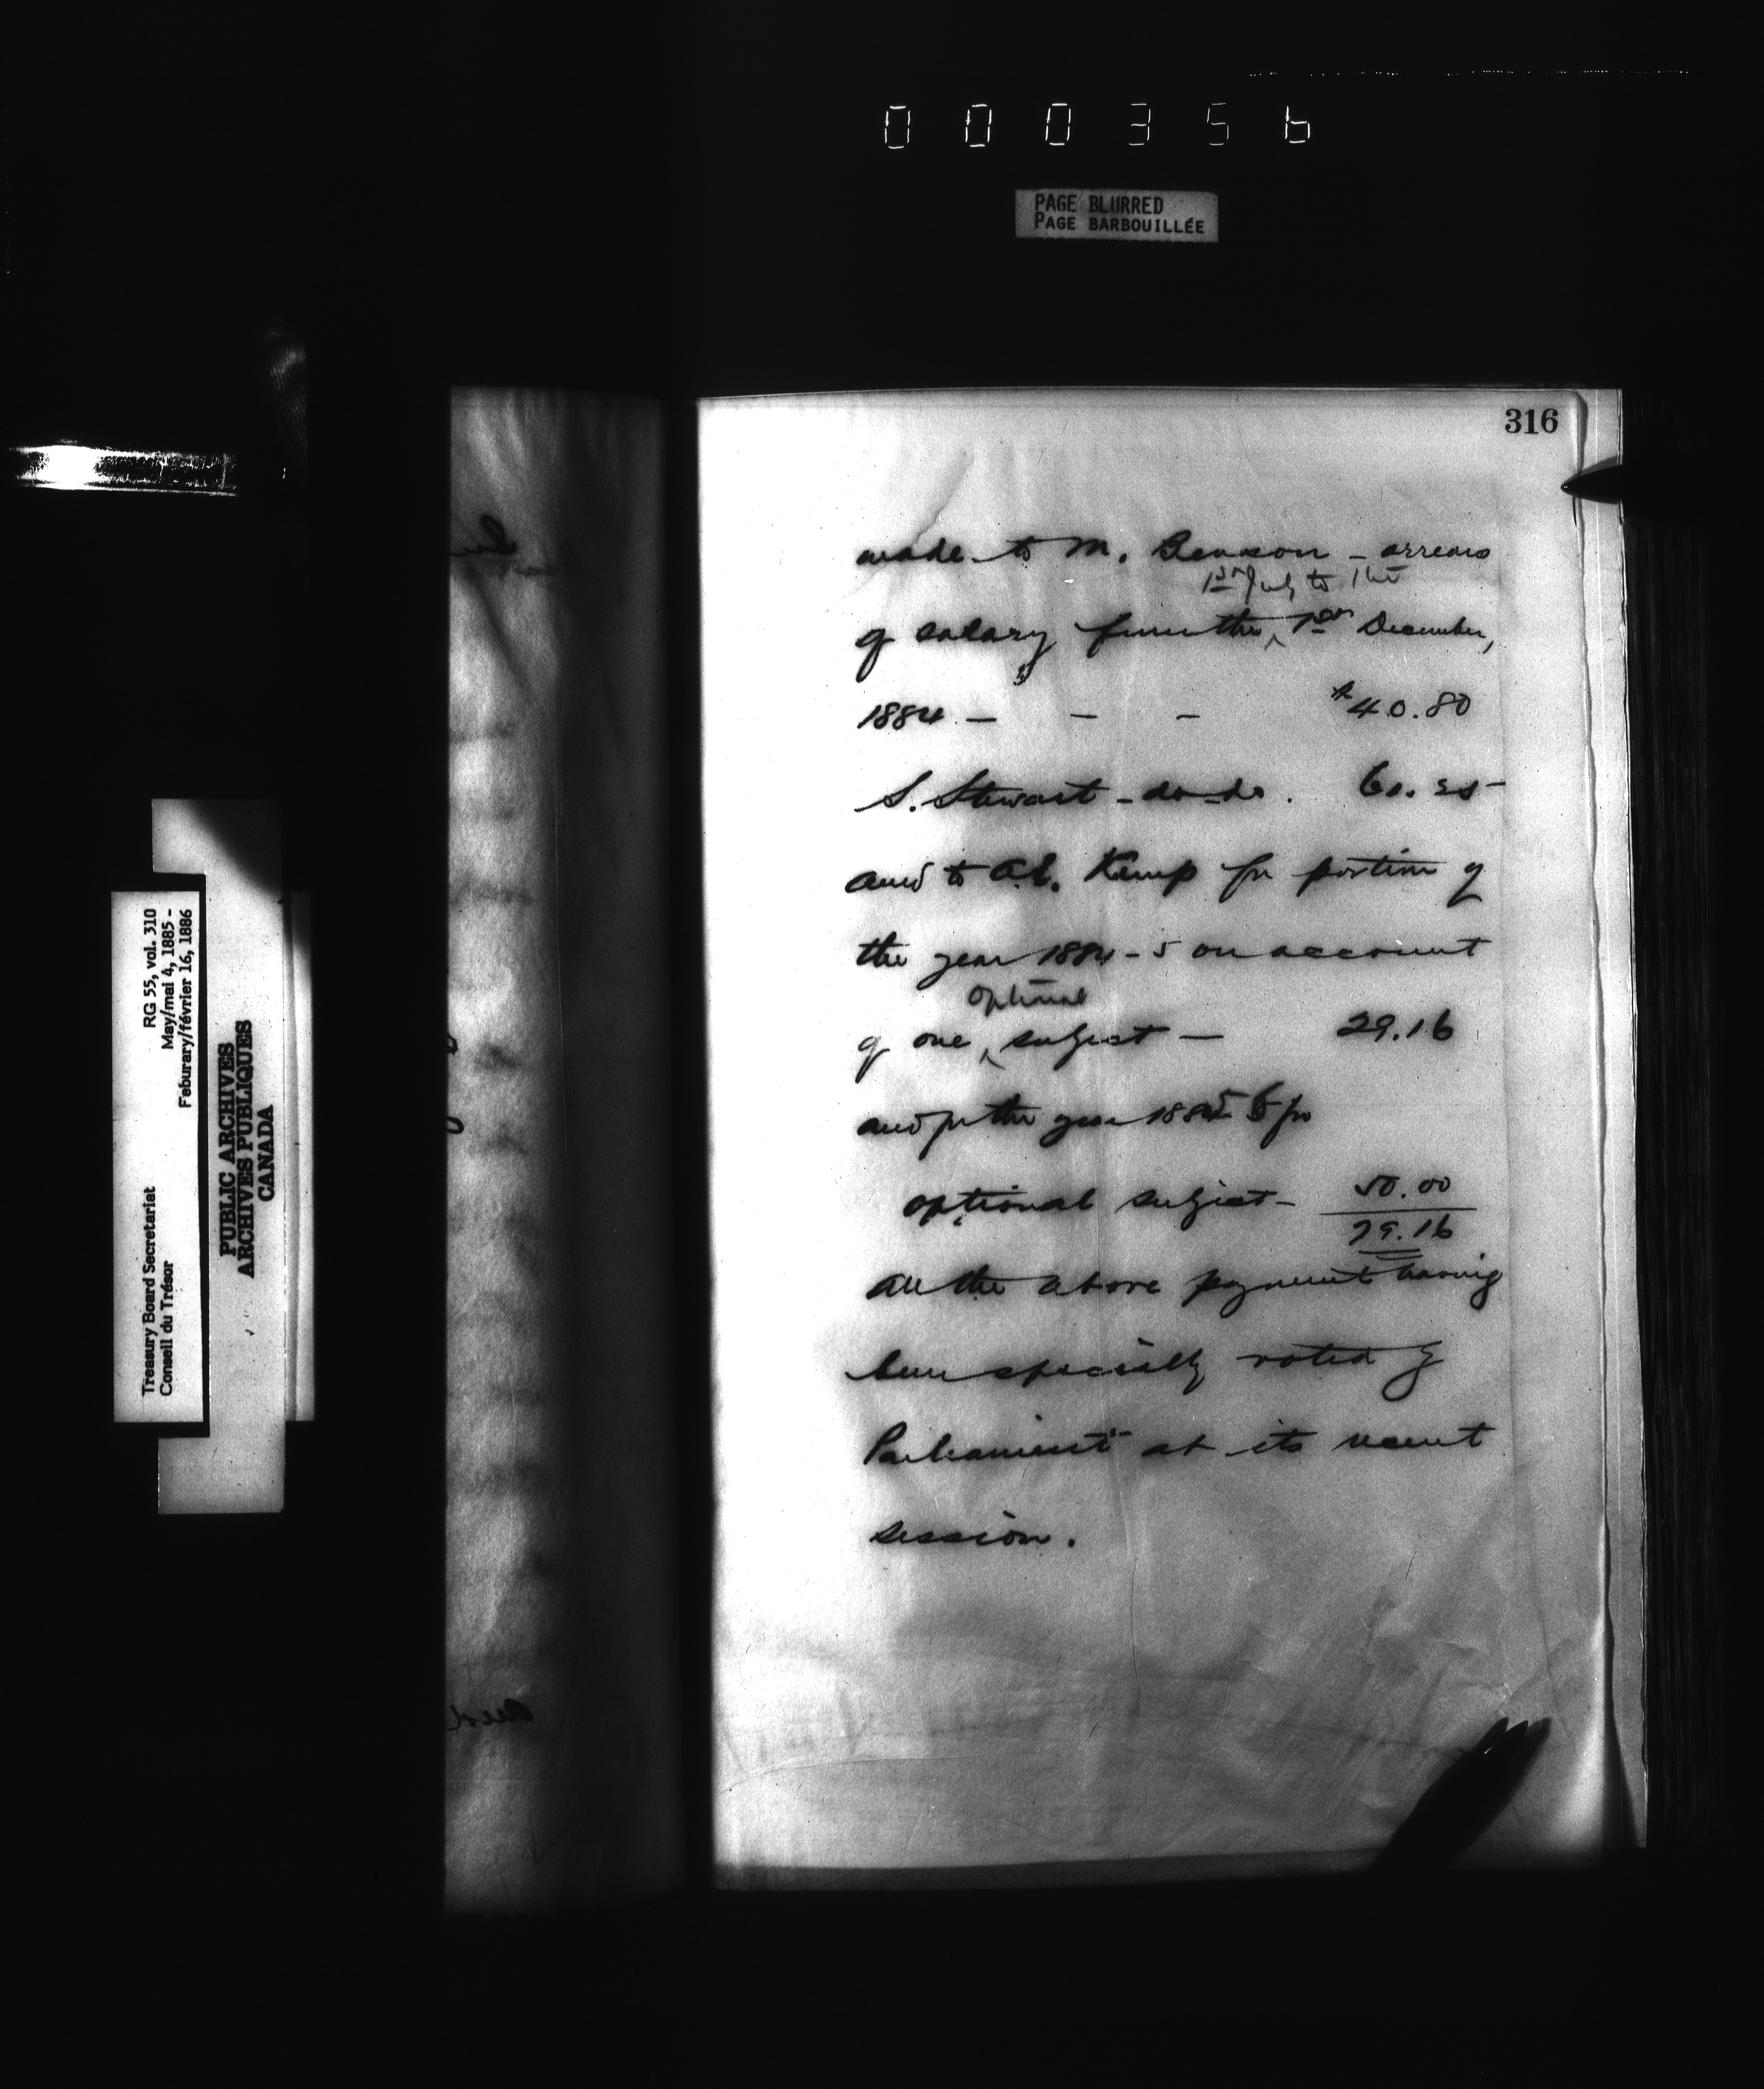 000356
PAGE BLURRED
PAGE BARBOUILLÉE
316
made to M. Benson - arrears
1st July to 1st
of salary from the ^ 1st December,
1884 - - - $40.80
S. Stewart - do - do. 60.25
and to A.E. Kemp for portion of
the year 1884-5 on account
optional
of one ^ subject - 29.16
and for the year 1885 6 for
optional subject - 50.00
79.16
all the above payments having
been specially voted by
Parliament at its recent
session.
Treasury Board Secretariat RG 55, vol. 310
Conseil du Trésor May/mai 4, 1885 -
Feburary/février 16, 1886
PUBLIC ARCHIVES
ARCHIVES PUBLIQUES
CANADA